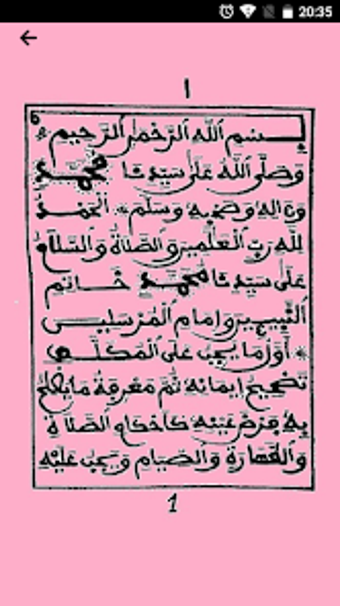 20:35
١
6
بِسْمِ اللَّهِ الرَّحْمَٰنِ الرَّحِيمِ
وَصَلَّى اللَّهُ عَلَى سَيِّدِنَا مُحَمَّدٍ
وَءَالِهِ وَصَحْبِهِ وَسَلَّمَ * الْحَمْدُ
لِلَّهِ رَبِّ الْعَٰلَمِينَ وَالصَّلَاةُ وَالسَّلَامُ
عَلَى سَيِّدِنَا مُحَمَّدٍ خَاتِمِ
النَّبِيِّينَ وَإِمَامِ الْمُرْسَلِينَ
* أَوَّلُ مَا يَجِبُ عَلَى الْمُكَلَّفِ
تَصْحِيحُ إِيمَانِهِ ثُمَّ مَعْرِفَةُ مَا يُصْلِحُ
بِهِ فَرْضَ عَيْنِهِ كَأَحْكَامِ الصَّلَاةِ
وَالطَّهَارَةِ وَالصِّيَامِ وَيَجِبُ عَلَيْهِ
1